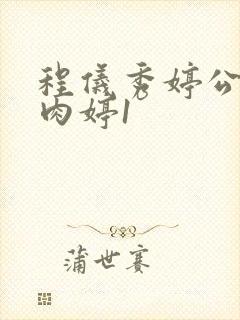 程儀秀婷公
肉婷1
蒲世赛